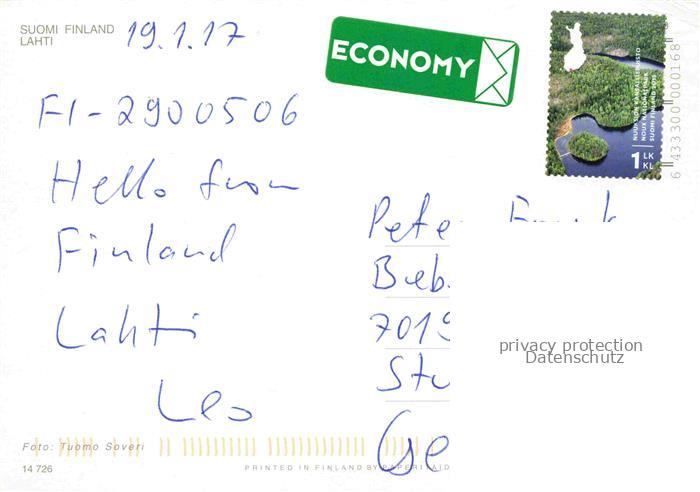 SUOMI FINLAND
LAHTI
19.1.17
ECONOMY
NUUKSION KANSALLISPUISTO
NOUX NATIONALPARK
SUOMI FINLAND 2015
1 LK
KL
6 433300 000168
FI-2900506
Hello from
Finland
Lahti
Leo
Pete
Bub
7019
Stu
Ge
privacy protection
Datenschutz
Foto: Tuomo Soveri
14 726
PRINTED IN FINLAND BY PAPERITAIDE